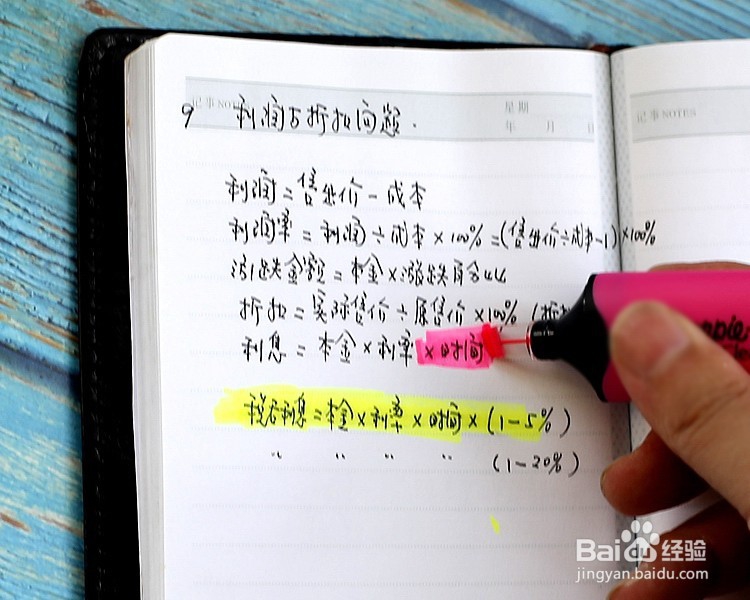 记事NOTES
星期
年 月 日
记事NOTES
9 利润与折扣问题.
利润=售出价-成本
利润率=利润÷成本×100%=(售出价÷成本-1)×100%
涨跌金额=本金×涨跌百分比
折扣=实际售价÷原售价×100% (折扣
利息=本金×利率×时间
税后利息=本金×利率×时间×(1-5%)
" " " " (1-20%)
Baidu经验
jingyan.baidu.com